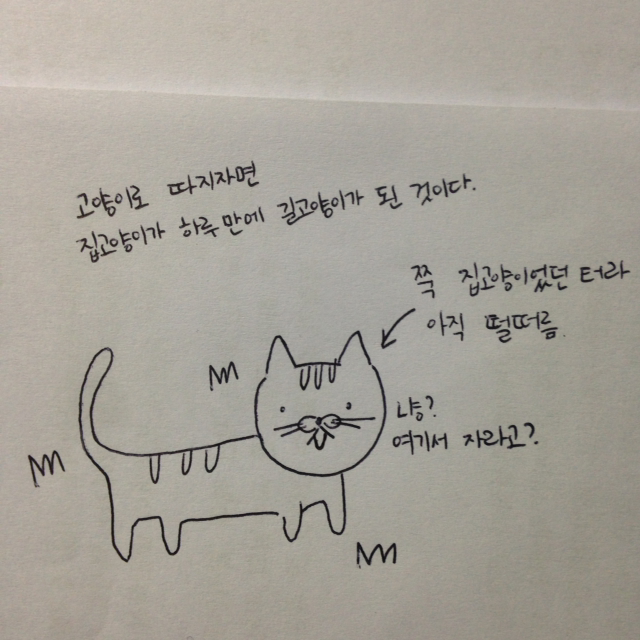 고양이로 따지자면
집고양이가 하루만에 길고양이가 된 것이다.
쭉 집고양이었던 터라
아직 떨떠름.
냐옹?
여기서 자라고?